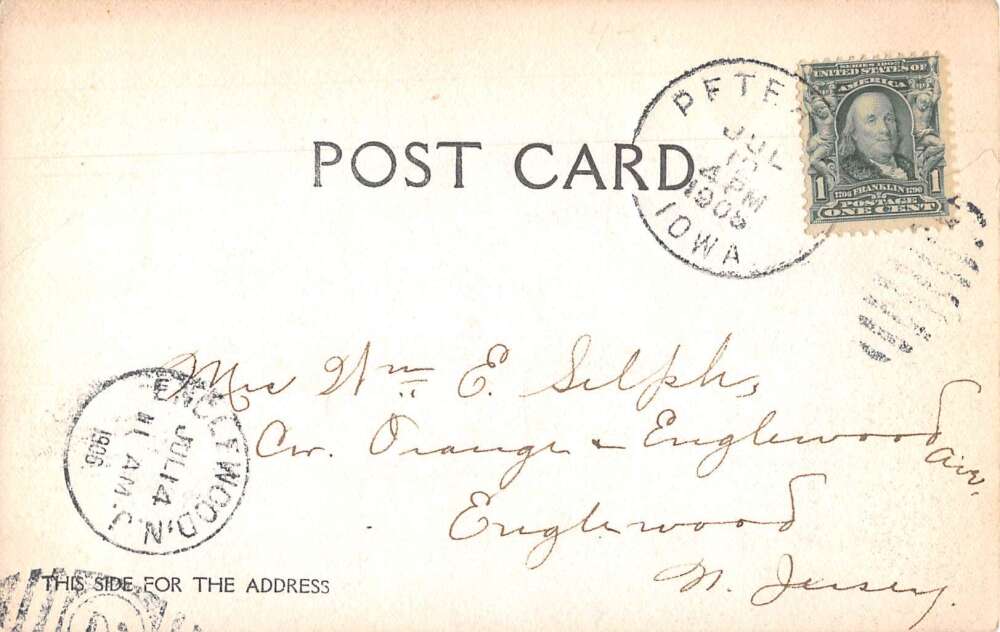 SERIES 1902
UNITED STATES OF
AMERICA
1706 FRANKLIN 1790
1 1
POSTAGE
ONE CENT
JUL
4 PM
IOWA
POST CARD
Mrs Wm E. Selph,
Cor. Orange & Englewood Ave.
Englewood
N. Jersey.
ENGLEWOOD, N.J.
JUL 14
11 AM
THIS SIDE FOR THE ADDRESS